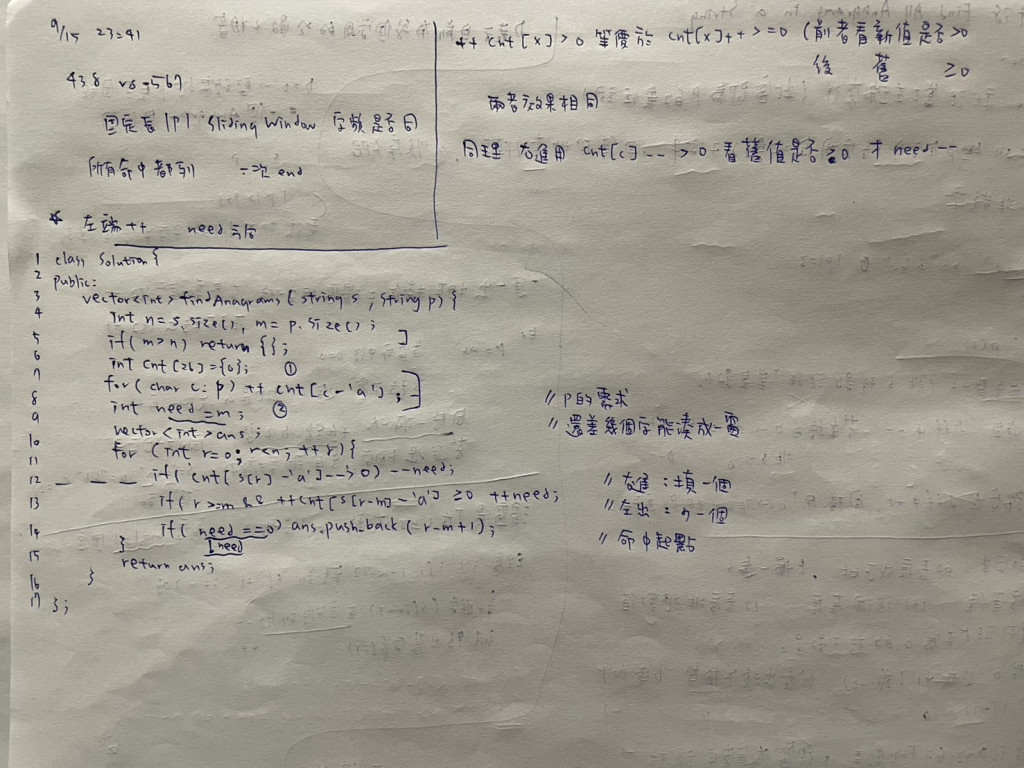 9/15 23:41
438 vs 567
固定長 |P| Sliding Window 字數是否同
所有命中都到 一次 end
* 左端++ need
++ cnt[x] > 0 等價於 cnt[x]++ >= 0 (前者看新值是否>0
後 舊 ≥0
兩者效果相同
同理 右進用 cnt[c]-- > 0 看舊值是否 才 need--
1 class Solution {
2 public:
3 vector<int> findAnagrams(string s, string p) {
4 int n = s.size(), m = p.size();
5 if(m>n) return {};
6 int cnt[26]={0}; ①
7 for(char c: p) ++cnt[c-'a'];
8 int need = m; ②
9 vector<int> ans;
10 for (int r=0; r<n; ++r){
11 if(cnt[s[r]-'a']-->0) --need;
12
13 if(r>=m && ++cnt[s[r-m]-'a'] ≥0 ++need;
14 if(need==0) ans.push_back(r-m+1);
!need
15 }
return ans;
16 }
17 };
// P的需求
// 還差幾個字能湊成一窗
// 右進:填一個
// 左出: 一個
// 命中起點